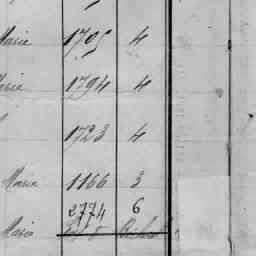 Marie 1705 4
Marie 1794 4
1723 4
Marie 1166 3
2774 6
Marie